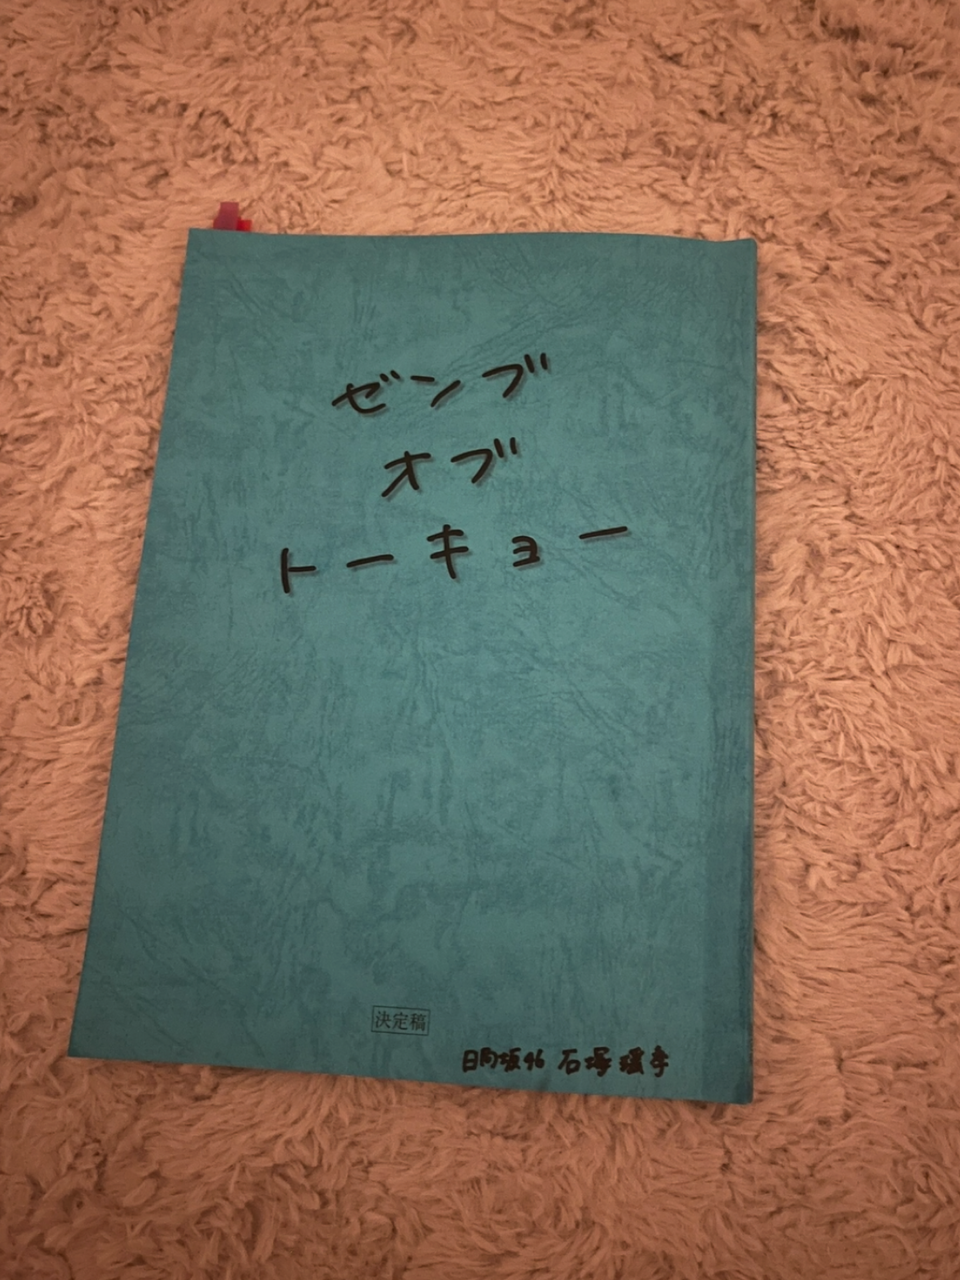 ゼンブ
オブ
トーキョー
決定稿
日向坂46 石塚瑶季